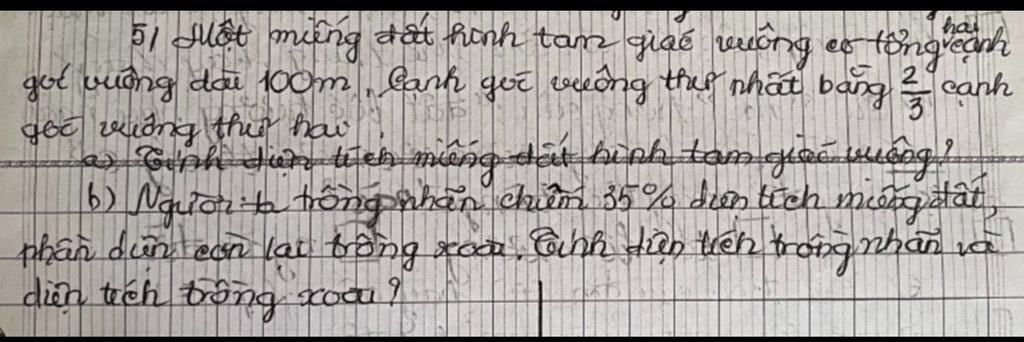 5/ Một miếng đất hình tam giác vuông có tổng hai cạnh
gót vuông dài 100m, Cạnh góc vuông thứ nhất bằng 2/3 cạnh
góc vuông thứ hai.
a) Tính diện tích miếng đất hình tam giác vuông?
b) Người ta trồng nhãn chiếm 35% diện tích miếng đất,
phần diện còn lại trồng xoài. Tính diện tích trồng nhãn và
diện tích trồng xoài?